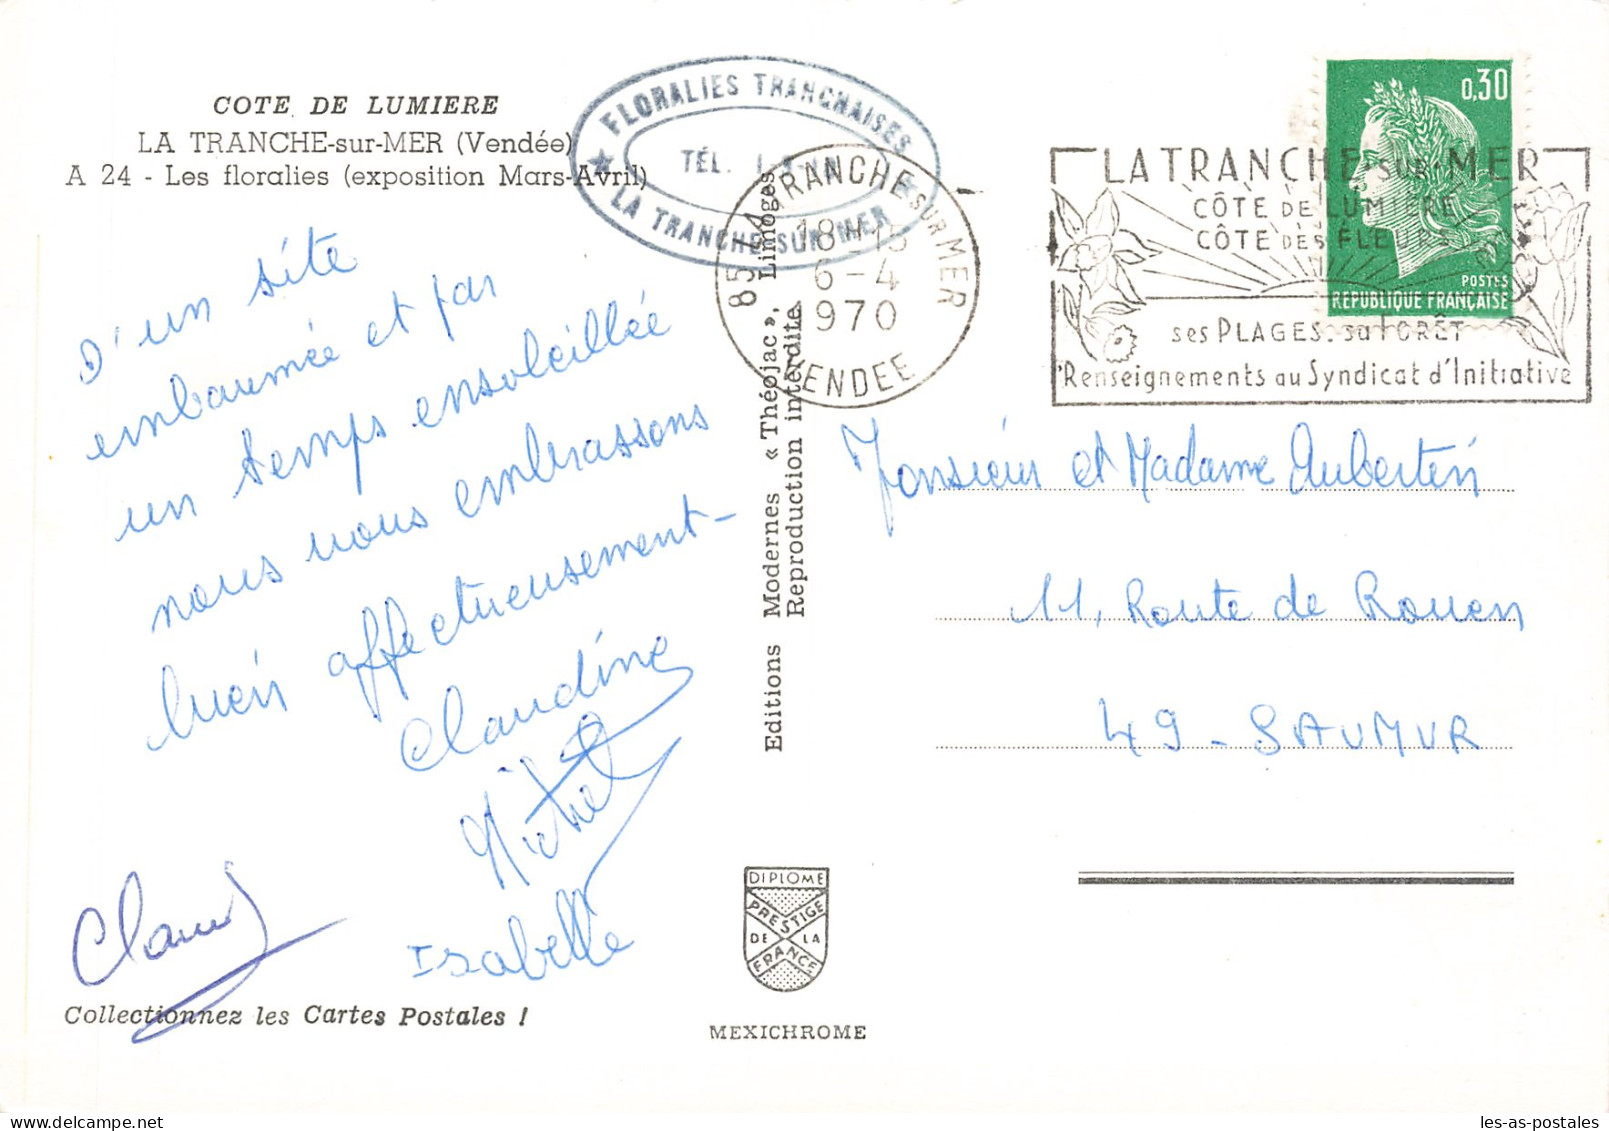 COTE DE LUMIERE
LA TRANCHE-sur-MER (Vendée)
A 24 - Les floralies (exposition Mars-Avril)
FLORALIES TRANCHAISES
TÉL.
LA TRANCHE-SUR-MER
D'un site
embaumée et par
un temps ensoleillée
nous vous embrassons
bien affectueusement-
Claudine
Michel
Isabelle
Claud
Collectionnez les Cartes Postales !
Editions Modernes « Théojac », Limoges
Reproduction interdite
DIPLOME
PRESTIGE
DE LA
FRANCE
MEXICHROME
TRANCHE SUR MER
18H15
6-4
1970
VENDEE
0,30
POSTES
REPUBLIQUE FRANÇAISE
LA TRANCHE SUR MER
CÔTE DE LUMIERE
CÔTE DES FLEURS
ses PLAGES. sa FORÊT
Renseignements au Syndicat d'Initiative
Monsieur et Madame Aubertin
11, Route de Rouen
49 - SAUMUR
les-as-postales